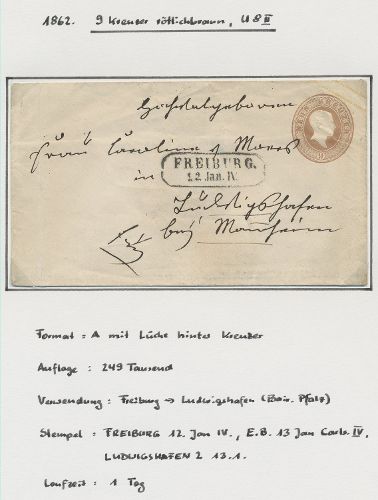 1862. 9 Kreuzer rötlichbraun, U 8 II
Hochwohlgeboren
Frau Caroline Maers
in
FREIBURG.
12. Jan. IV.
Ludwigshafen
bei Manheim
Format = A mit Lücke hinter Kreuzer
Auflage : 249 Tausend
Verwendung : Freiburg → Ludwigshafen (Bair. Pfalz)
Stempel : FREIBURG 12. Jan IV., E.B. 13 Jan Carls. IV,
LUDWIGSHAFEN 2 13.1.
Laufzeit : 1 Tag